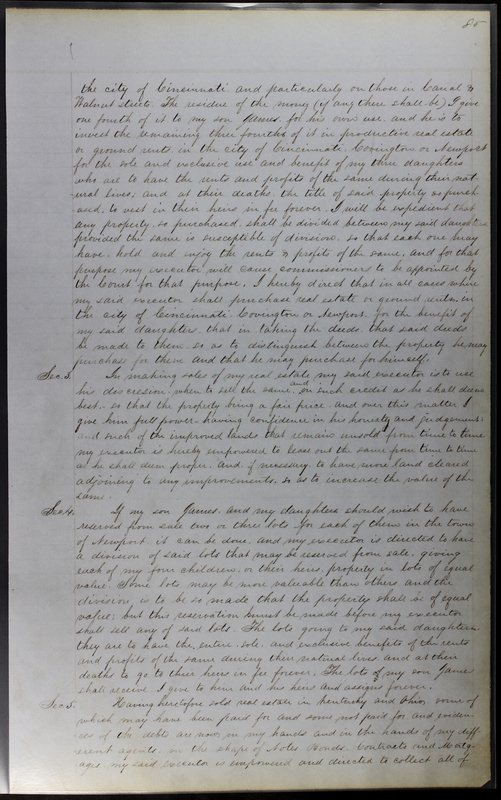 85
the city of Cincinnati and particularly on those in Canal &
Walnut street. The residue of the money (if any there shall be) I give
one fourth of it to my son James, for his own use, and he is to
invest the remaining three fourths of it in productive real estate
or ground rents, in the city of Cincinnati, Covington or Newport
for the sole and exclusive use and benefit of my three daughters
who are to have the rents and profits of the same during their nat-
ural lives; and at their deaths, the title of said property so purch
ased, to vest in their heirs in fee forever, I will be expedient that
any property, so purchased, shall be divided between my said daughters
provided the same is susceptible of division, so that each one may
have, hold and enjoy the rents & profits of the same, and for that
purpose my executor will cause commissioners to be appointed by
the Court for that purpose. I hereby direct that in all cases where
my said executor shall purchase real estate or ground rents, in
the city of Cincinnati, Covington or Newport, for the benefit of
my said daughters, that in taking the deeds, that said deeds
be made to them, so as to distinguish between the property he may
purchase for them and that he may purchase for himself.
Sec. 3. In making sales of my real estate, my said executor is to use
his discresion, when to sell the same, and on such credit as he shall deem
best, so that the property bring a fair price, and over this matter I
give him full power, having confidence in his honesty and judgement:
and such of the improved lands that remains unsold from time to time
my executor is hereby empowered to lease out the same from time to time
as he shall deem proper. And, if necessary, to have more land cleared
adjoining to any improvements, so as to increase the value of the
same.
Sec. 4. If my son James, and my daughters should wish to have
reserved from sale two or three lots for each of them in the town
of Newport, it can be done, and my executor is directed to have
a division of said lots that may be reserved from sale, giving
each of my four children, or their heirs, property in lots of equal
value. Some lots may be more valuable than others and the
division is to be so made that the property shall be of equal
value; but this reservation must be made before my executor
shall sell any of said lots. The lots going to my said daughters,
they are to have the entire, sole, and exclusive benefits of the rents
and profits of the same during their natural lives and at their
deaths to go to their heirs in fee forever. The lots of my son James
shall receive, I give to him and his heirs and assigns forever.
Sec. 5. Having heretofore sold real estate in Kentucky and Ohio, some of
which may have been paid for and some not paid for and eviden-
ces of the debts are now in my hands and in the hands of my diff-
erent agents, in the shape of Notes, Bonds, Contracts and Mortg-
ages, my said executor is empowered and directed to collect all of